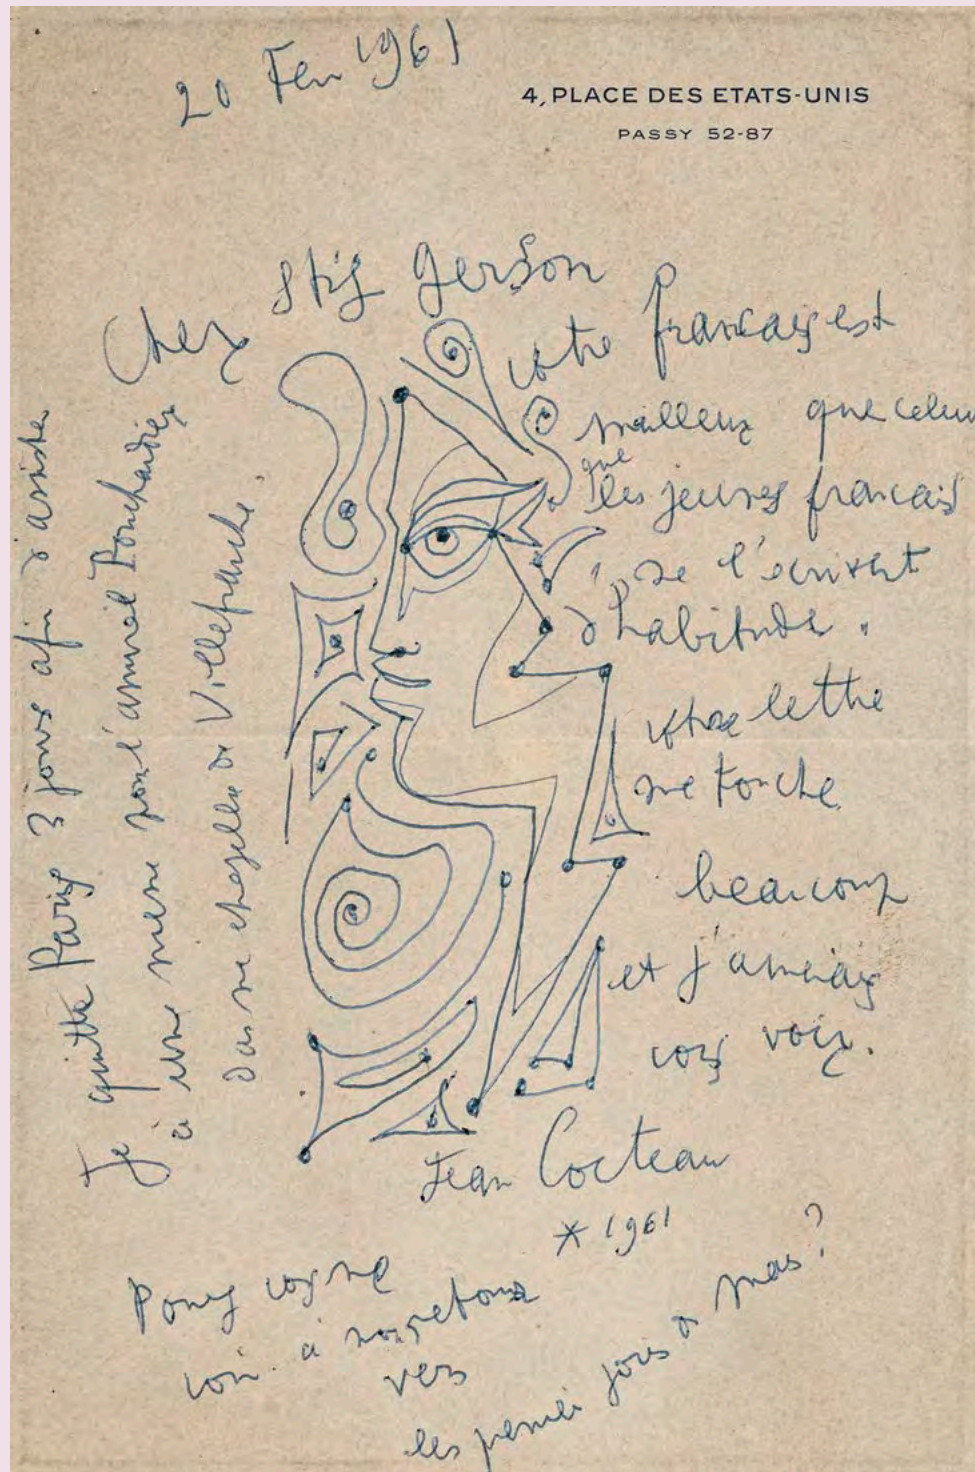 20 Fev 1961
4, PLACE DES ETATS-UNIS
PASSY 52-87
Cher Stig Gerson
votre français est
meilleur que celui
que les jeunes français
ne l'écrivent
d'habitude.
votre lettre
me touche
beaucoup
et j'aimerais
vous voir.
Jean Cocteau
* 1961
Je quitte Paris 3 jours afin d'assister
à une messe pour l'amiral Ponchardier
dans ma chapelle de Villefranche.
vous me
voir à mon retour
vers
les premier jours de mars?